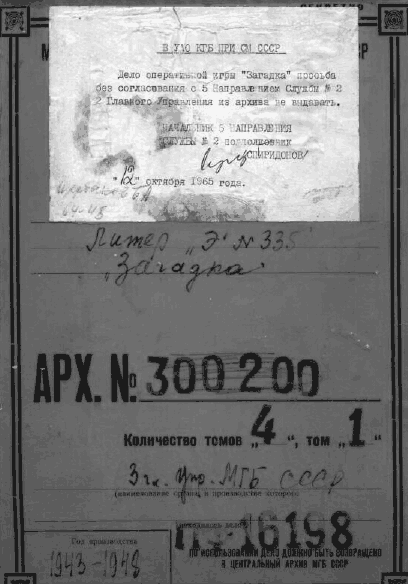 В УАО КГБ ПРИ СМ СССР
Дело оперативной игры "Загадка" просьба
без согласования с 5 Направлением Службы № 2
2 Главного Управления из архива не выдавать.
НАЧАЛЬНИК 5 НАПРАВЛЕНИЯ
СЛУЖБЫ № 2 подполковник
СПИРИДОНОВ
"12" октября 1965 года.
Литер „Э" № 335
„Загадка"
АРХ. № 300200
Количество томов „4", том „1"
3 гл. Упр. МГБ СССР
(наименование органа, в производстве которого
находилось дело)
16198
Год производства
1943-1948
ПО ИСПОЛЬЗОВАНИИ ДЕЛО ДОЛЖНО БЫТЬ ВОЗВРАЩЕНО
В ЦЕНТРАЛЬНЫЙ АРХИВ МГБ СССР